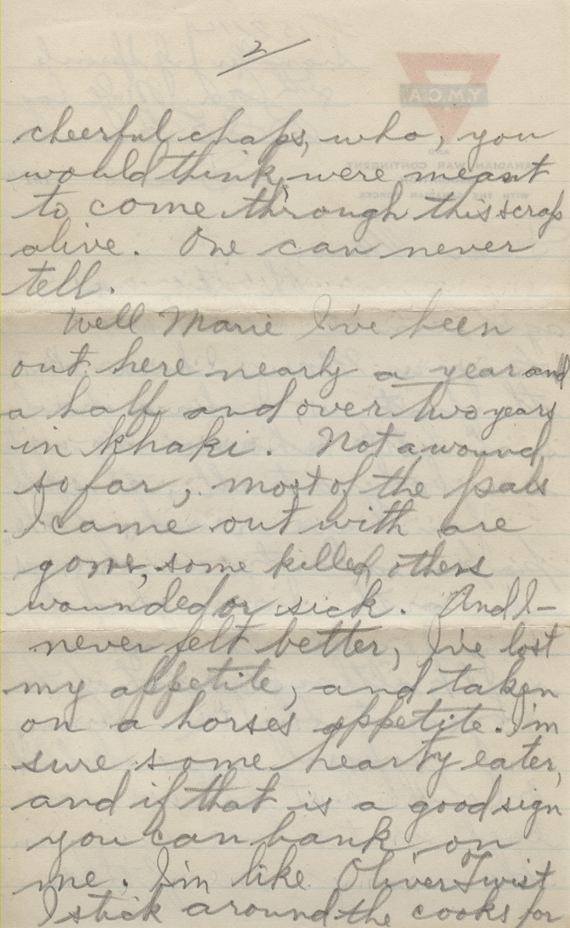 2
cheerful chaps, who, you
would think, were meant
to come through this scrap
alive. One can never
tell.
Well Marie I've been
out here nearly a year and
a half and over two years
in khaki. Not a wound
so far, most of the pals
I came out with are
gone, some killed, others
wounded or sick. And I -
never felt better, I've lost
my appetite, and taken
on a horses appetite. I'm
sure some hearty eater,
and if that is a good sign
you can bank on
me. I'm like Oliver Twist
I stick around the cooks for
Y.M.C.A
CANADIAN WAR CONTINGENT
WITH THE